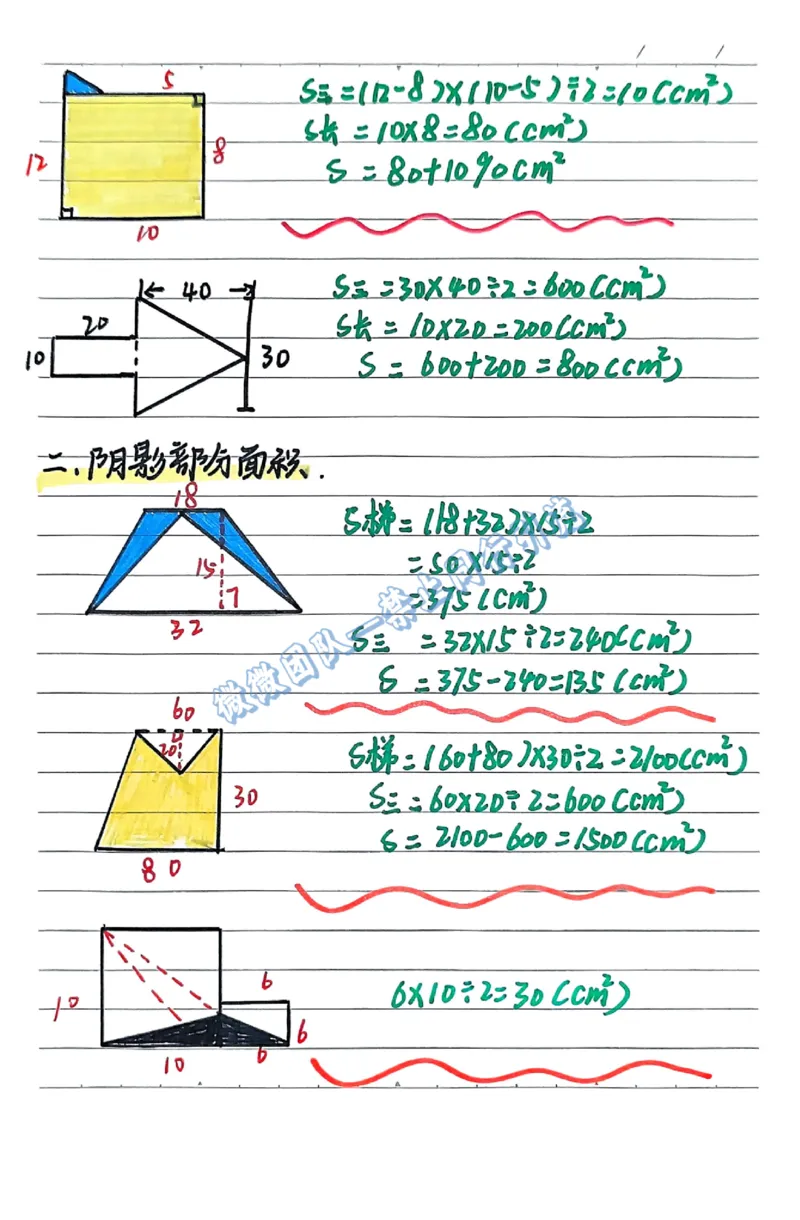 5
12
8
10
S三=(12-8)×(10-5)÷2=10(cm²)
S长=10×8=80(cm²)
S=80+10 90cm²
40
20
10
30
S三=30×40÷2=600(cm²)
S长=10×20=200(cm²)
S=600+200=800(cm²)
二、阴影部分面积.
18
15
32
S梯=(18+32)×15÷2
=50×15÷2
=375(cm²)
S三=32×15÷2=240(cm²)
S=375-240=135(cm²)
60
20
30
80
S梯=(60+80)×30÷2=2100(cm²)
S三=60×20÷2=600(cm²)
S=2100-600=1500(cm²)
10
6
6
10
6
6×10÷2=30(cm²)
微微团队一禁止同行办搬